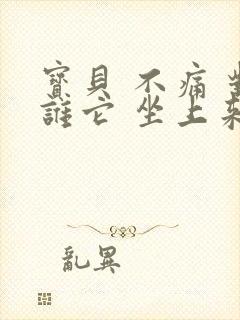 寶貝 不痛
誰它 坐上來
亂異